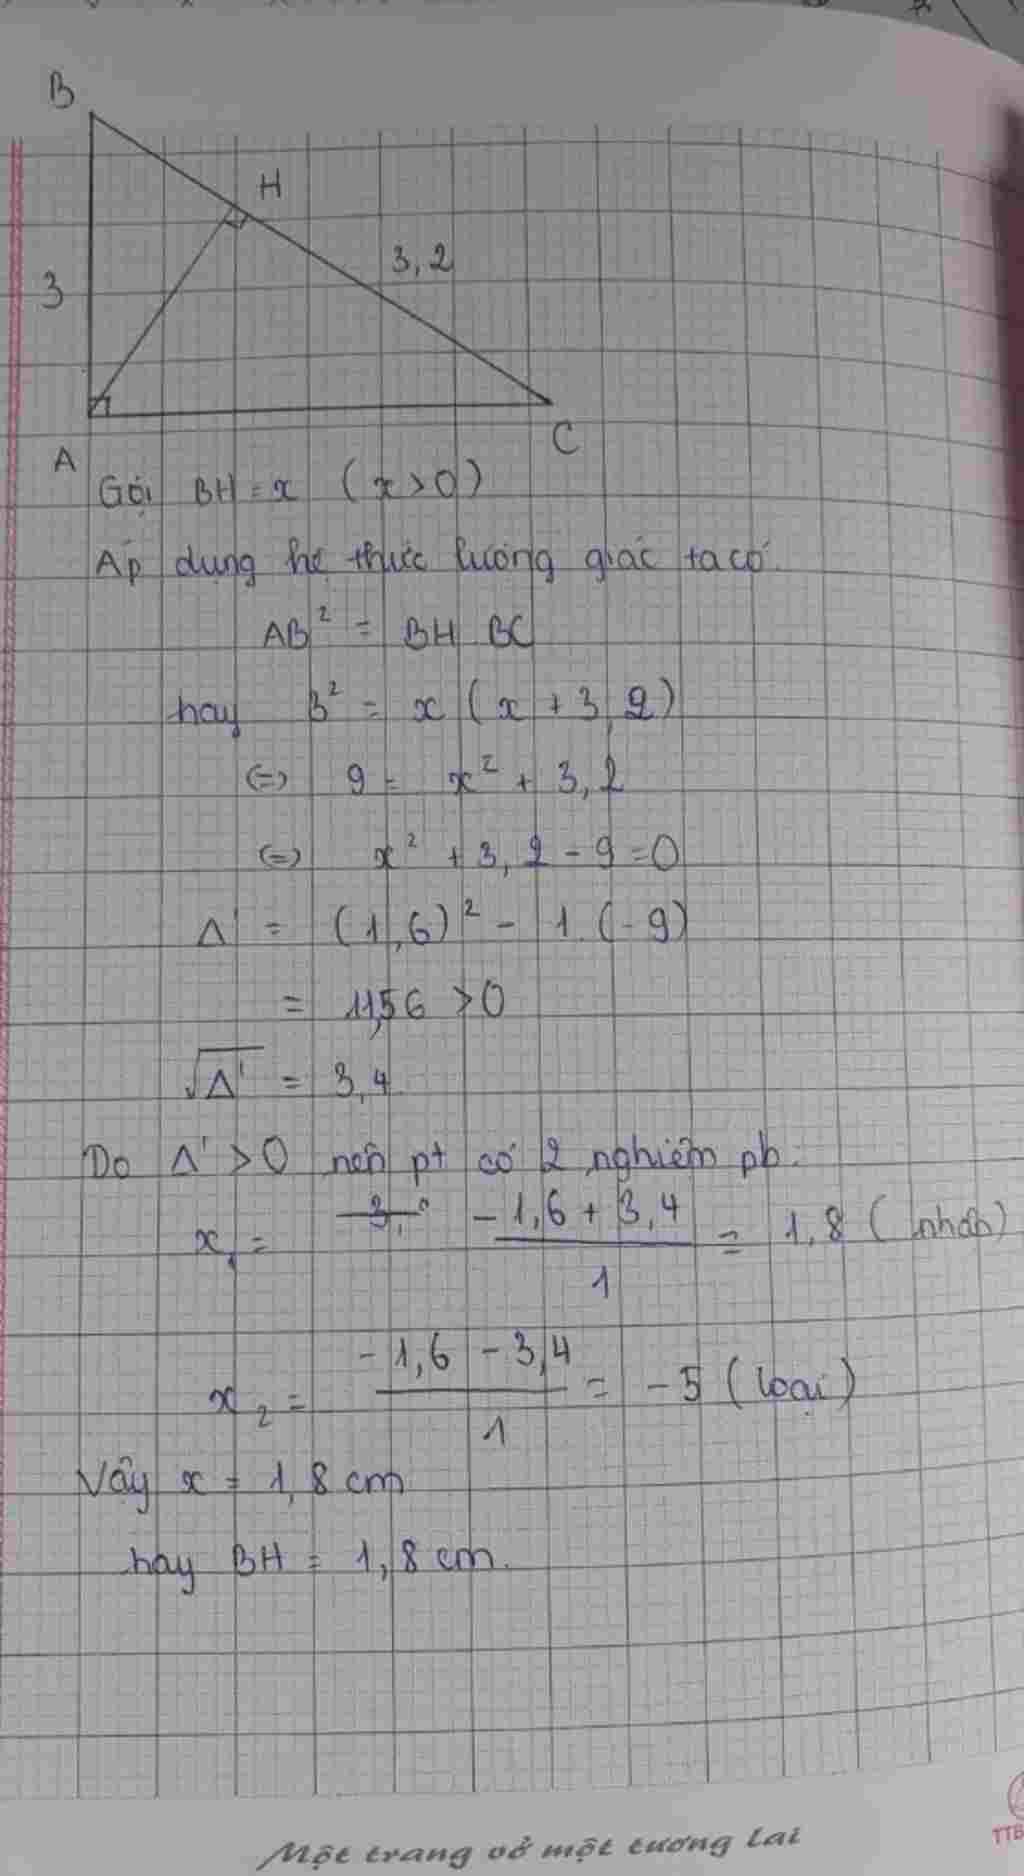 B
H
3,2
3
A
C
Gọi BH = x (x > 0)
Áp dụng hệ thức lượng giác ta có:
AB² = BH . BC
hay 3² = x (x + 3,2)
(=) 9 = x² + 3,2
(=) x² + 3,2 - 9 = 0
Δ' = (1,6)² - 1.(-9)
= 11,56 > 0
√Δ' = 3,4
Do Δ' > 0 nên pt có 2 nghiệm pb:
x₁ = (-1,6 + 3,4)/1 = 1,8 (nhận)
x₂ = (-1,6 - 3,4)/1 = -5 (loại)
Vậy x = 1,8 cm
hay BH = 1,8 cm.
Một trang vở một tương lai
TTB